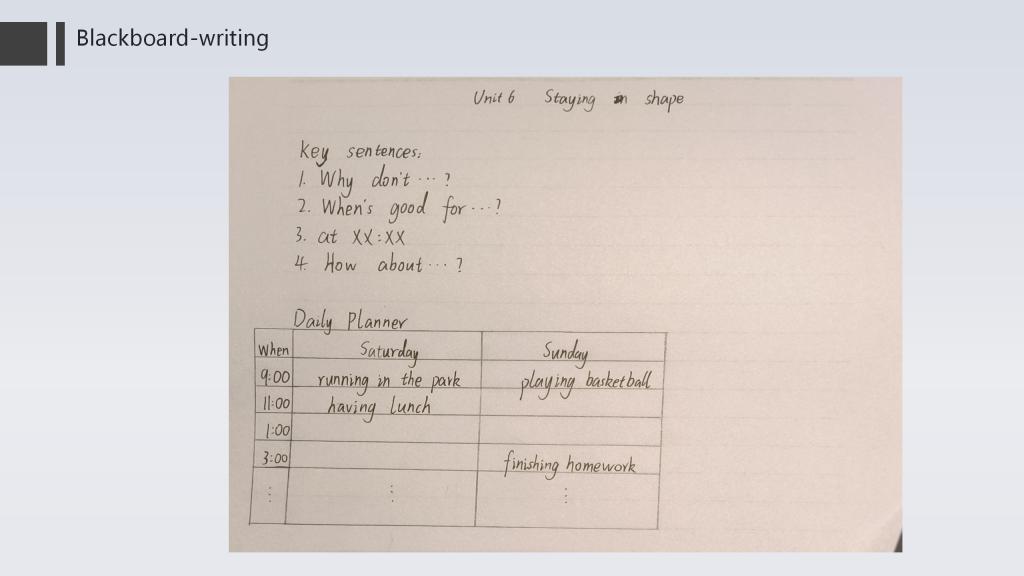 Blackboard-writing
Unit 6 Staying in shape
Key sentences:
1. Why don't ··· ?
2. When's good for ··· ?
3. at XX:XX
4. How about ··· ?
Daily Planner
When Saturday Sunday
9:00 running in the park playing basketball
11:00 having lunch
1:00
3:00 finishing homework
⋮ ⋮ ⋮